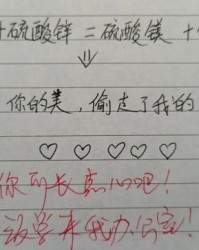 +硫酸锌 = 硫酸镁 +
你的美，偷走了我的
你可长点心吧！
放学来我办公室！